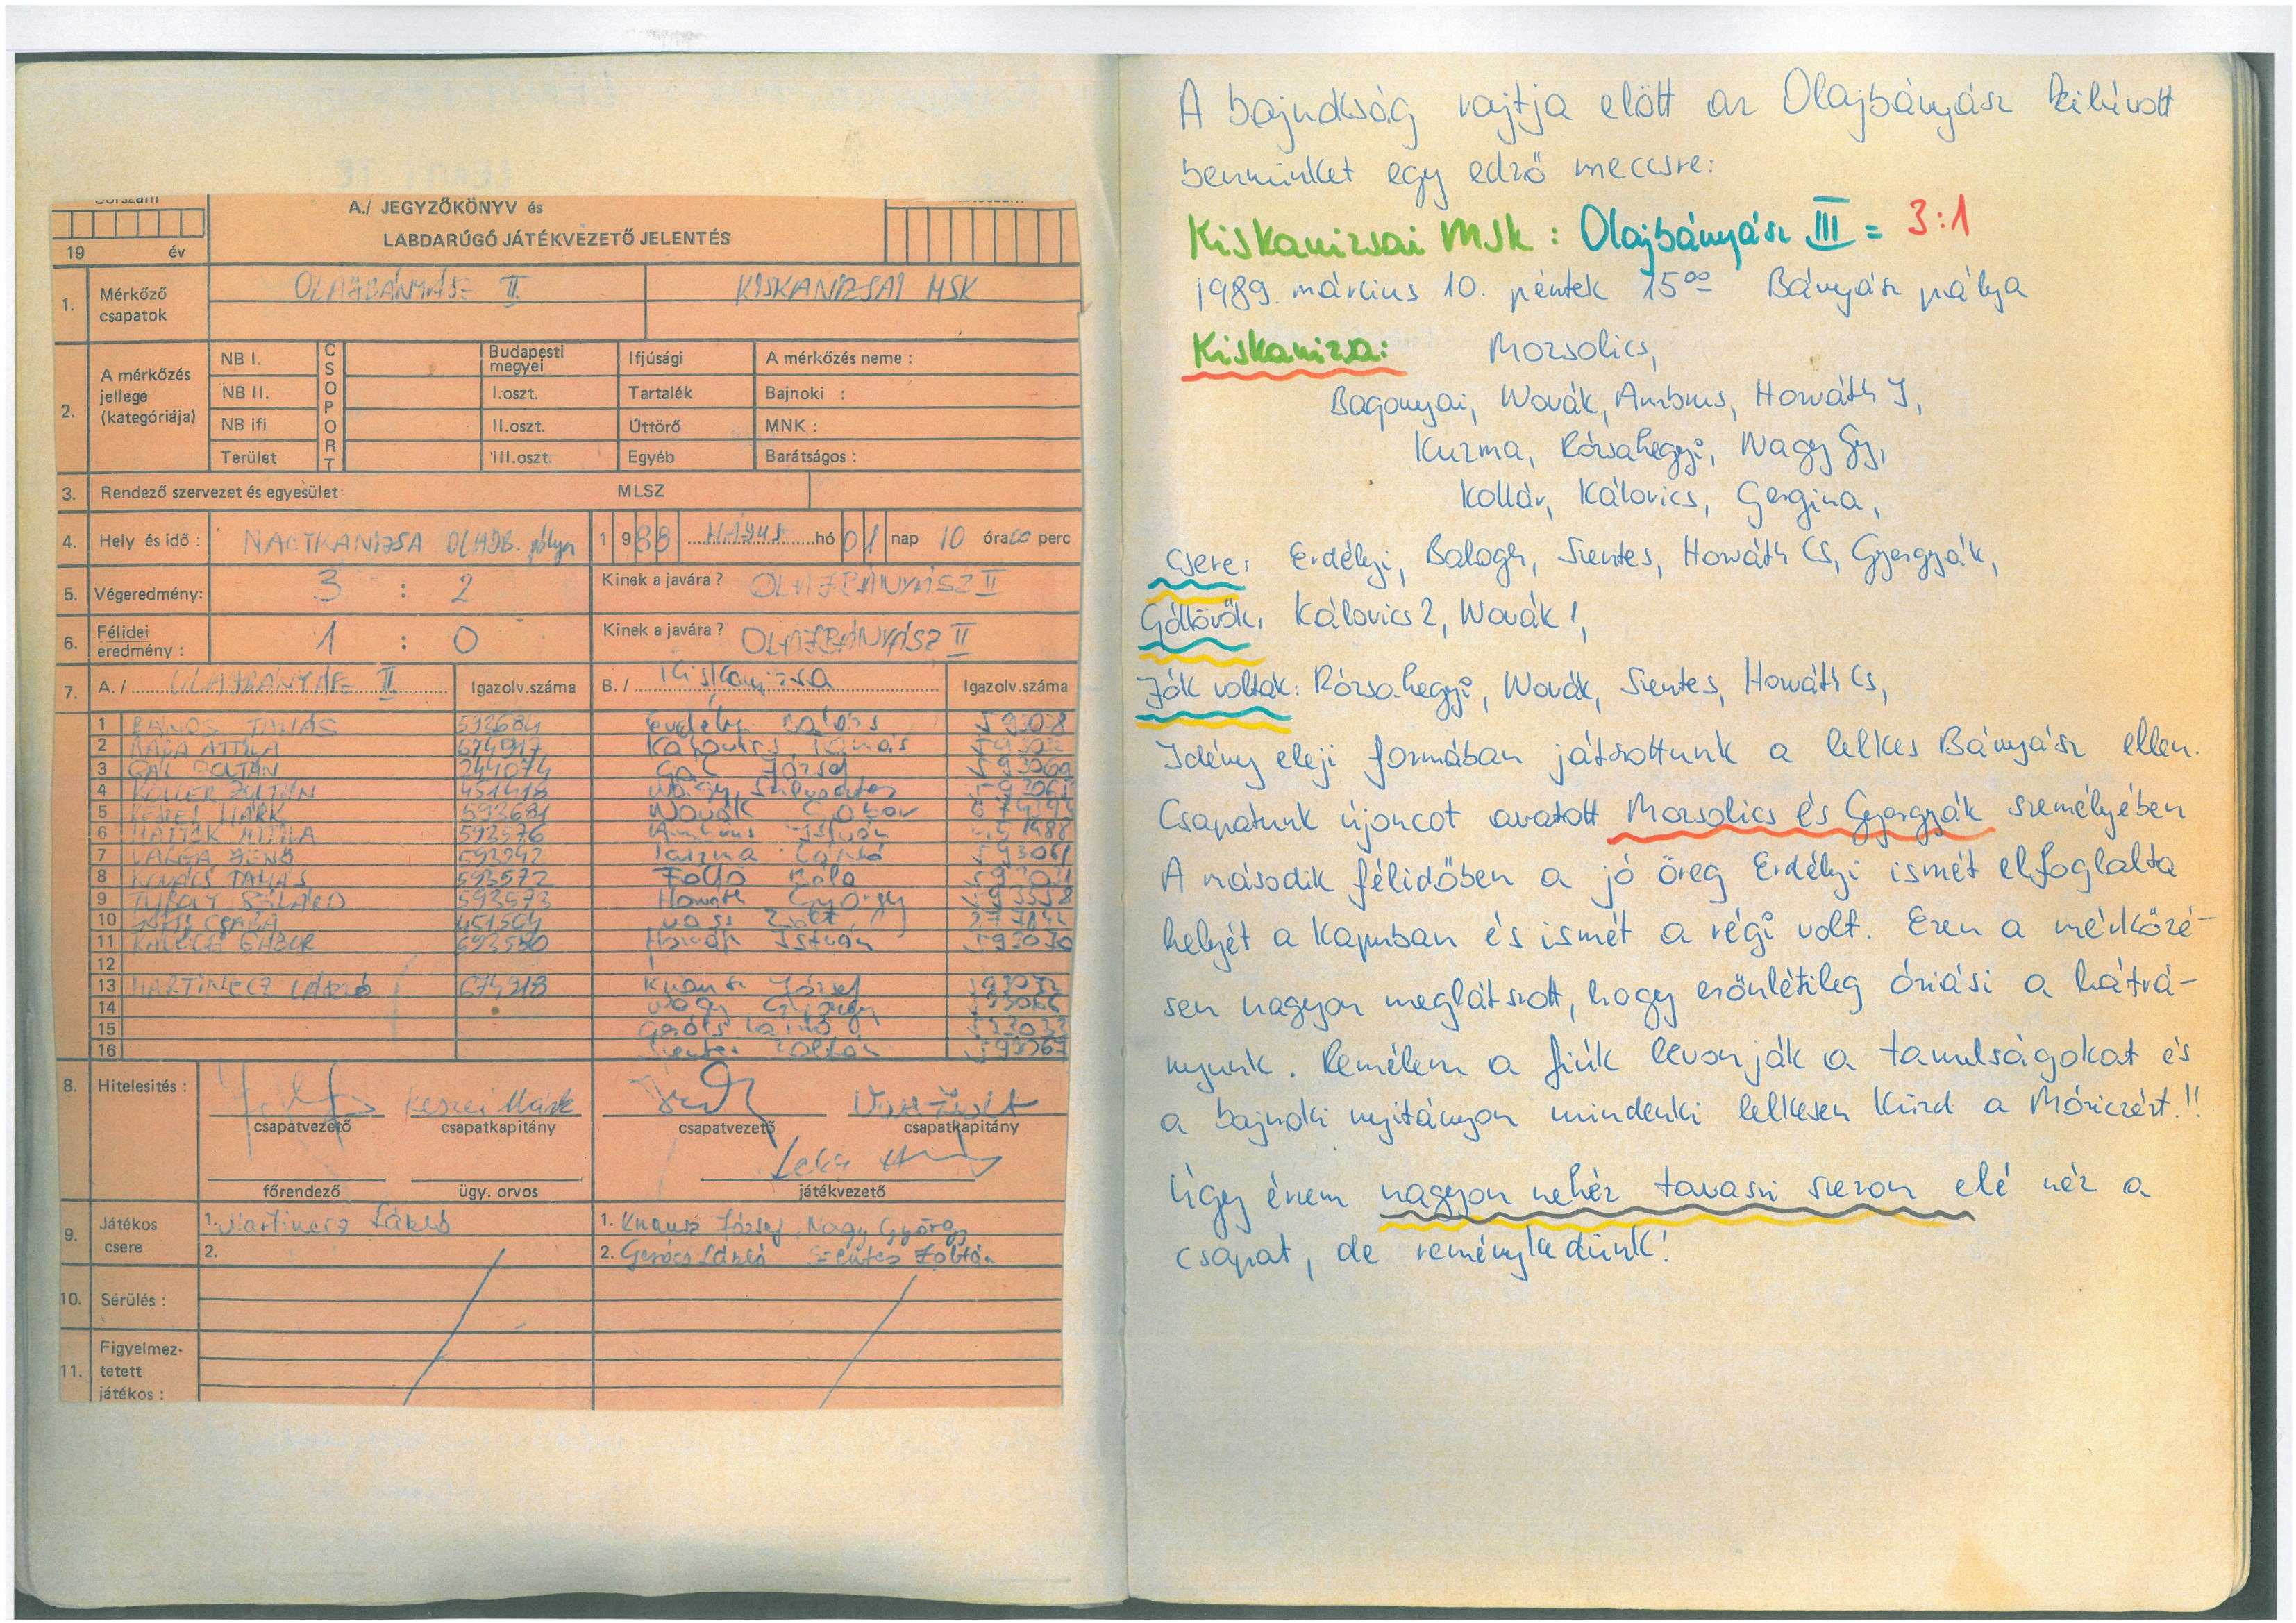 A./ JEGYZŐKÖNYV és
LABDARÚGÓ JÁTÉKVEZETŐ JELENTÉS
19 év
1. Mérkőző csapatok OLAJBÁNYÁSZ II. KISKANIZSAI MSK
2. A mérkőzés jellege (kategóriája)
CSOPORT
NB I. Budapesti megyei Ifjúsági A mérkőzés neme :
NB II. I.oszt. Tartalék Bajnoki :
NB ifi II.oszt. Úttörő MNK :
Terület III.oszt. Egyéb Barátságos :
3. Rendező szervezet és egyesület MLSZ
4. Hely és idő : NAGYKANIZSA OLAJB. pálya 1988 MÁJUS hó 01 nap 10 óra 00 perc
5. Végeredmény: 3 : 2 Kinek a javára ? OLAJBÁNYÁSZ II
6. Félidei eredmény : 1 : 0 Kinek a javára ? OLAJBÁNYÁSZ II
7. A./ OLAJBÁNYÁSZ II Igazolv.száma B./ Kiskanizsa Igazolv.száma
1 TAMÁS 592684 Erdélyi
2 ATTILA 674917 Kálovics
3 GÁL ZOLTÁN 244074 Gál József 593069
4 KOLLER ZOLTÁN 451418 Nagy Szilveszter
5 KESZEI MÁRK 593681 Novák Gábor
6 ATTILA 592576 Ambrus István
7 VARGA JENŐ 593242 Kuzma László 593061
8 KOVÁCS TAMÁS 593572 Béla
9 SZILÁRD 593573 Horváth György
10 CSABA 451504 Vass Zsolt
11 GÁBOR 593580 Horváth István 593070
12
13 MARTINECZ LÁSZLÓ 674918 Knausz József
14 Nagy György
15 Gerócs László
16 Szentes Zoltán 593067
8. Hitelesités : Keszei Márk Vass Zsolt
csapatvezető csapatkapitány csapatvezető csapatkapitány
főrendező ügy. orvos játékvezető
9. Játékos csere 1. Martinecz László 1. Knausz József, Nagy György
2. 2. Gerócs László Szentes Zoltán
10. Sérülés :
11. Figyelmez-
tetett
játékos :
A bajnokság rajtja előtt az Olajbányász kihívott
bennünket egy edző meccsre:
Kiskanizsai MSK : Olajbányász III = 3:1
1989. március 10. péntek 15⁰⁰ Bányász pálya
Kiskanizsa: Mozsolics,
Bagonyai, Novák, Ambrus, Horváth I,
Kuzma, Rózsahegyi, Nagy Gy,
Kollár, Kálovics, Gergina,
Csere: Erdélyi, Balogh, Szentes, Horváth Cs, Gyergyák,
Góllövők: Kálovics 2, Novák 1,
Jók voltak: Rózsahegyi, Novák, Szentes, Horváth Cs,
Idény eleji formában játszottunk a lelkes Bányász ellen.
Csapatunk újoncot avatott Mozsolics és Gyergyák személyében
A második félidőben a jó öreg Erdélyi ismét elfoglalta
helyét a kapuban és ismét a régi volt. Ezen a mérkőzé-
sen nagyon meglátszott, hogy erőnlétileg óriási a hátrá-
nyunk. Remélem a fiúk levonják a tanulságokat és
a bajnoki nyitányon mindenki lelkesen küzd a Móriczért.!!
Úgy érzem nagyon nehéz tavaszi szezon elé néz a
csapat, de reménykedünk!